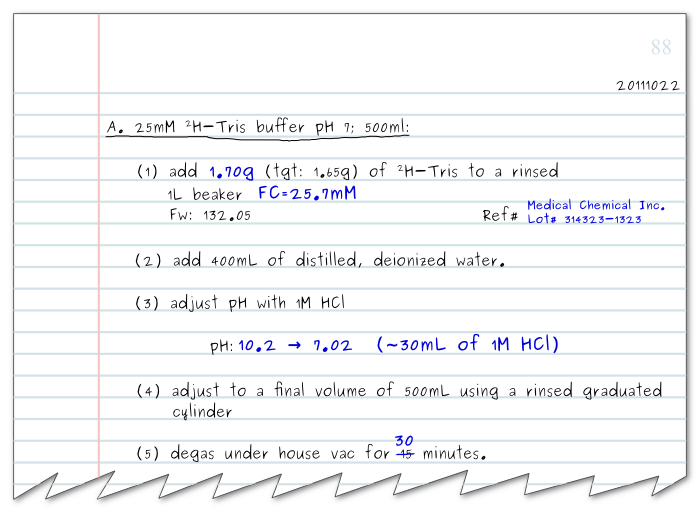 88
20111022
A. 25mM ²H-Tris buffer pH 7; 500ml:
(1) add 1.70g (tgt: 1.65g) of ²H-Tris to a rinsed
1L beaker FC=25.7mM
Fw: 132.05
Ref# Medical Chemical Inc.
Lot# 314323-1323
(2) add 400mL of distilled, deionized water.
(3) adjust pH with 1M HCl
pH: 10.2 → 7.02 (~30mL of 1M HCl)
(4) adjust to a final volume of 500mL using a rinsed graduated
cylinder
30
(5) degas under house vac for 45 minutes.